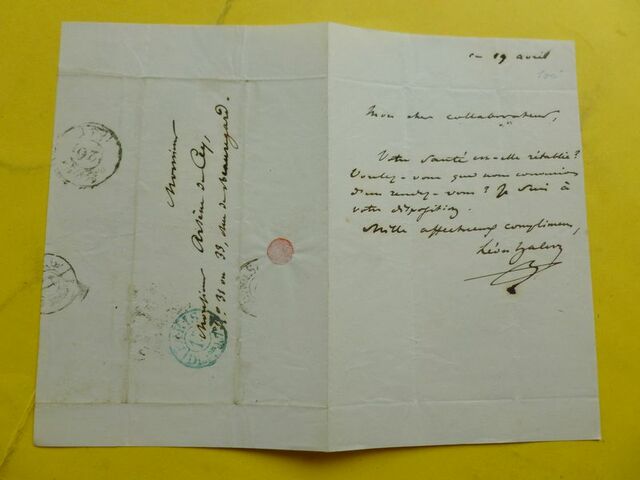 ce 19 avril
Mon cher collaborateur,
Votre santé est-elle rétablie?
Voulez-vous que nous convenions
d'un rendez-vous? Je suis à
votre disposition.
Mille affectueux compliments,
Léon Halévy
Monsieur
Monsieur Arsène de Cey,
n° 31 ou 33, rue de Beauregard.